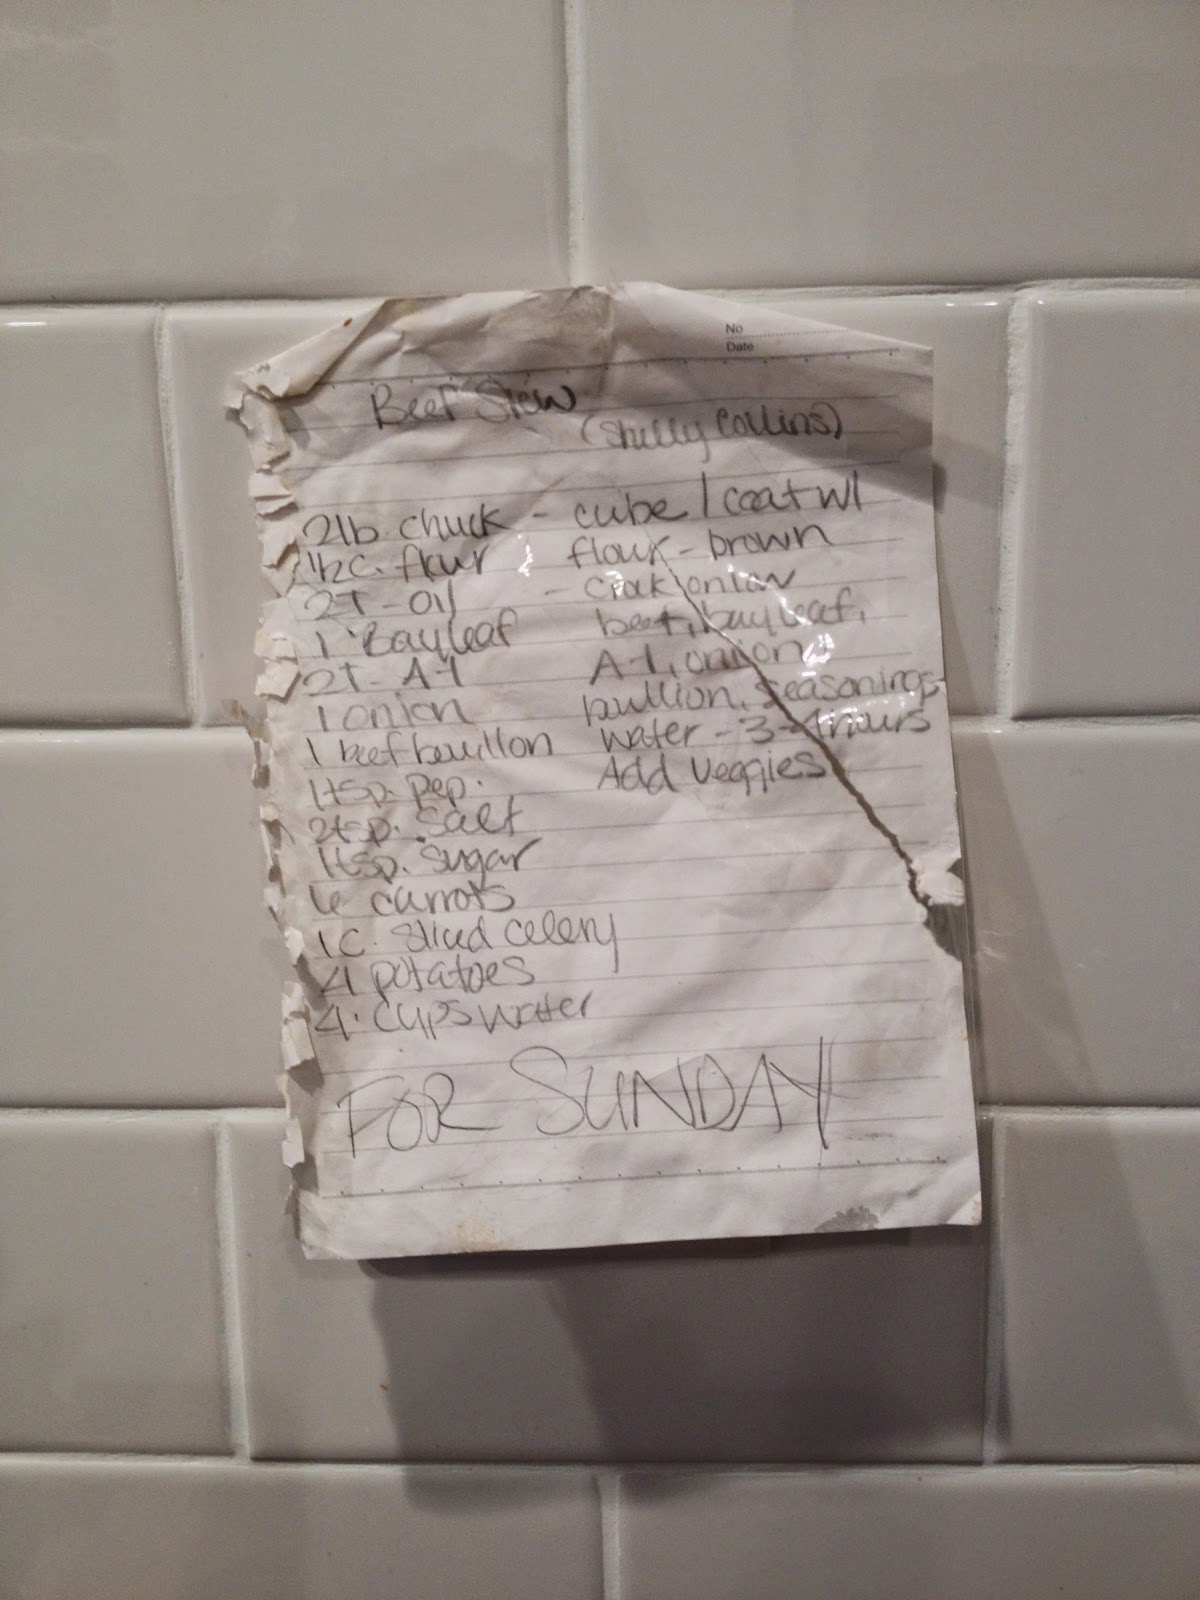 No
Date
Beef Stew
(Shelly Collins)
2lb chuck - cube / coat w/
1/2 c. flour flour - brown
2T - oil - crok on low
1 Bayleaf beef, bay leaf,
2T - A-1 A-1, onion
1 onion bullion, seasonings
1 beef bouillon water - 3-4 hours
1 tsp. pep. Add veggies
2 tsp. salt
1 tsp. sugar
6 carrots
1 C. sliced celery
4 potatoes
4 cups water
FOR SUNDAY